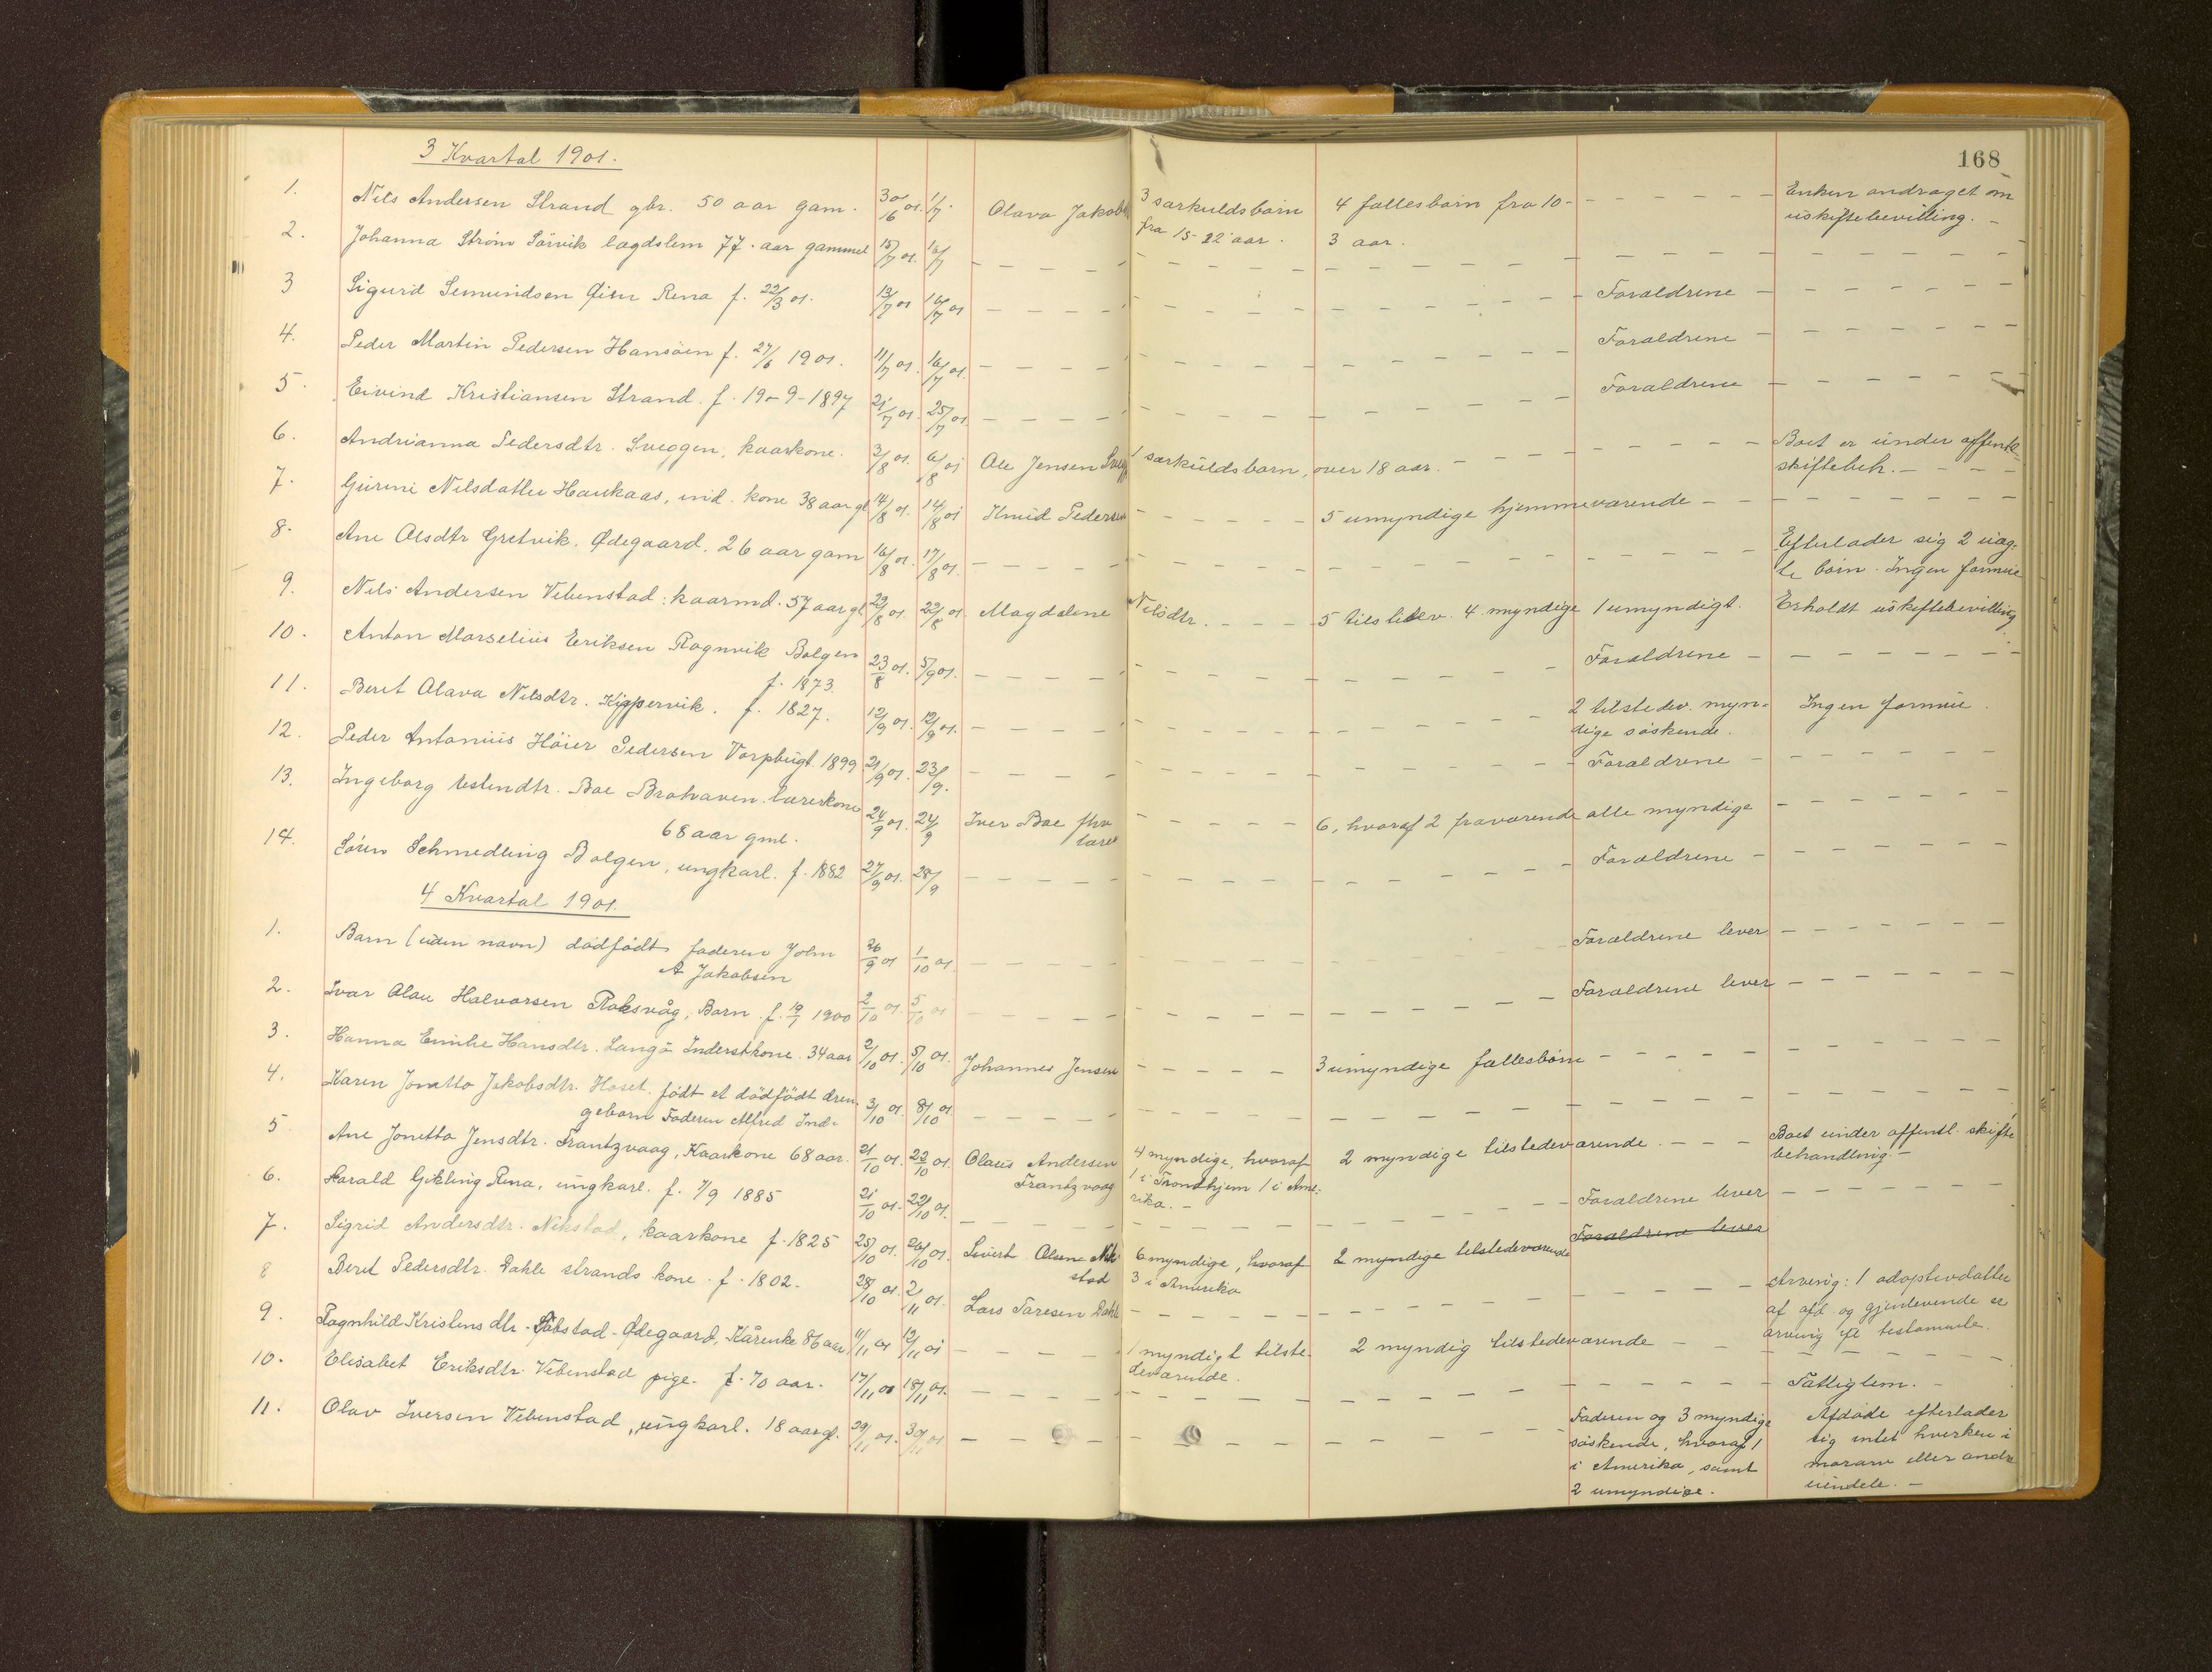 168
3 Kvartal 1901.
1. Nils Andersen Strand gbr. 50 aar gam. 30/16 01. 1/7. Olava Jakobs 3 særkuldsbørn 4 fællesbørn fra 10- - - - - - Enken andraget om
fra 15-22 aar. 3 aar. uskiftebevilling. -
2. Johanna Strøm Sørvik lægdslem 77 aar gammel 15/7 01. 16/7 - - - -
3 Sigurd Semundsen Øien Rena f. 22/3 01. 13/7 01 16/7 01 - - - - Forældrene - - - -
4. Peder Martin Pedersen Hansøen f. 27/6 1901. 11/7 01. 16/7 01. - - - - Forældrene - - - -
5. Eivind Kristiansen Strand. f. 19-9-1897 21/7 01. 25/7 01. - - - - Forældrene - - - -
6. Andrianna Pedersdtr. Sveggen, kaarkone. 3/8 01. 6/8 01 Ole Jensen Svegg 1 særkuldsbarn, over 18 aar. - - - - Boet er under offentl.
skiftebeh. - - -
7. Gurine Nilsdatter Haukaas, ind. kone 38 aar gl 14/8 01. 14/8 01 Knud Pedersen - - - - 5 umyndige hjemmeværende - - - -
8. Ane Olsdtr Gretvik. Ødegaard. 26 aar gam 16/8 01. 17/8 01. - - - - Efterlader sig 2 uæg-
te børn. Ingen formue
9. Nils Andersen Vebenstad: kaarmd. 57 aar gl 22/8 01. 23/8 01. Magdalene Nilsdtr. - - - 5 tilstedev. 4 myndige 1 umyndigt. Erholdt uskiftebevilling
10. Anton Marselius Eriksen Ragnvik Bolgen 23/8 01. 5/9 01. - - - - Forældrene - - - -
f. 1873.
11. Beret Olava Nilsdtr. Kippervik. f. 1827. 12/9 01. 12/9 01. - - - - 2 tilstedev. myn- Ingen formue.
dige søskende.
12. Peder Antonius Höier Pedersen Vorpbugt. 1899 21/9 01. 23/9. - - - - Forældrene - - - -
13. Ingeborg Estendtr. Boe Brohaven lærerkone 24/9 01. 24/9 Iver Boe fhv - - - - 6, hvoraf 2 fraværende alle myndige - - - -
68 aar gml. lærer
14. Sören Schmedling Bolgen, ungkarl. f. 1882 27/9 01. 28/9 - - - - Forældrene - - - -
4 Kvartal 1901.
1. Barn (uden navn) dødfødt, faderen John 26/9 01 1/10 01. - - - - Forældrene lever - - - -
A Jakobsen
2. Ivar Olau Halvorsen Roksvåg, Barn. f. 19/7 1900 2/10 01. 5/10 01 - - - - Forældrene lever - - - -
3. Hanna Emilie Hansdtr. Langö Inderstkone. 34 aar 2/10 01. 5/10 01. Johannes Jensen - - - - 3 umyndige fællesbørn - - - -
4. Karen Jonetta Jakobsdtr. Hoset. født et dødfødt dren- 3/10 01. 8/10 01. - - - -
gebarn Faderen Alfred Ind.
5 Ane Jonetta Jensdtr. Frantzvaag, Kaarkone 68 aar. 21/10 01. 23/10 01. Olaus Andersen 4 myndige, hvoraf 2 myndige tilstedeværende. - - - Boet under offentl. skifte
Frantzvaag 1 i Trondhjem 1 i Ame- behandling. -
rika. -
6. Harald Gikling Rena, ungkarl. f. 7/9 1885 21/10 01. 22/10 01. - - - - Forældrene lever - - - -
Forældrene lever
7. Sigrid Andersdtr. Nekstad, kaarkone f. 1825 25/10 01. 26/10 01. Sivert Olsen Nek- 6 myndige, hvoraf 2 myndige tilstedeværende
stad 3 i Amerika
8 Beret Pedersdtr. Dahle strands kone. f. 1802. 28/10 01. 2/11 01. Lars Taresen Dahle - - - - Arving: 1 adoptivdatter
af afd. og gjenlevende er
arving ifl testamente.
9. Ragnhild Kristensdtr. Ødegaard, Kårenke 86 aar 11/11 01 12/11 01 - - - - 1 myndigt tilste- 2 myndig tilstedeværende - - - -
deværende.
10. Elisabet Eriksdtr. Vebenstad pige. f. 70 aar. 17/11 01 18/11 01. - - - - Fattiglem. -
11. Olav Iversen Vebenstad, ungkarl. 18 aar gl. 29/11 01. 30/11 01 - - - - Faderen og 3 myndige Afdøde efterlader
søskende, hvoraf 1 sig intet hverken i
i Amerika, samt morarv eller andre
2 umyndige. eiendele. -